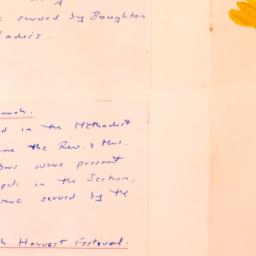 served by Boughton
ladies.
d in the Methodist
the Rev. & Mrs.
were present
in the Section,
were served by the
h Harvest Festival.